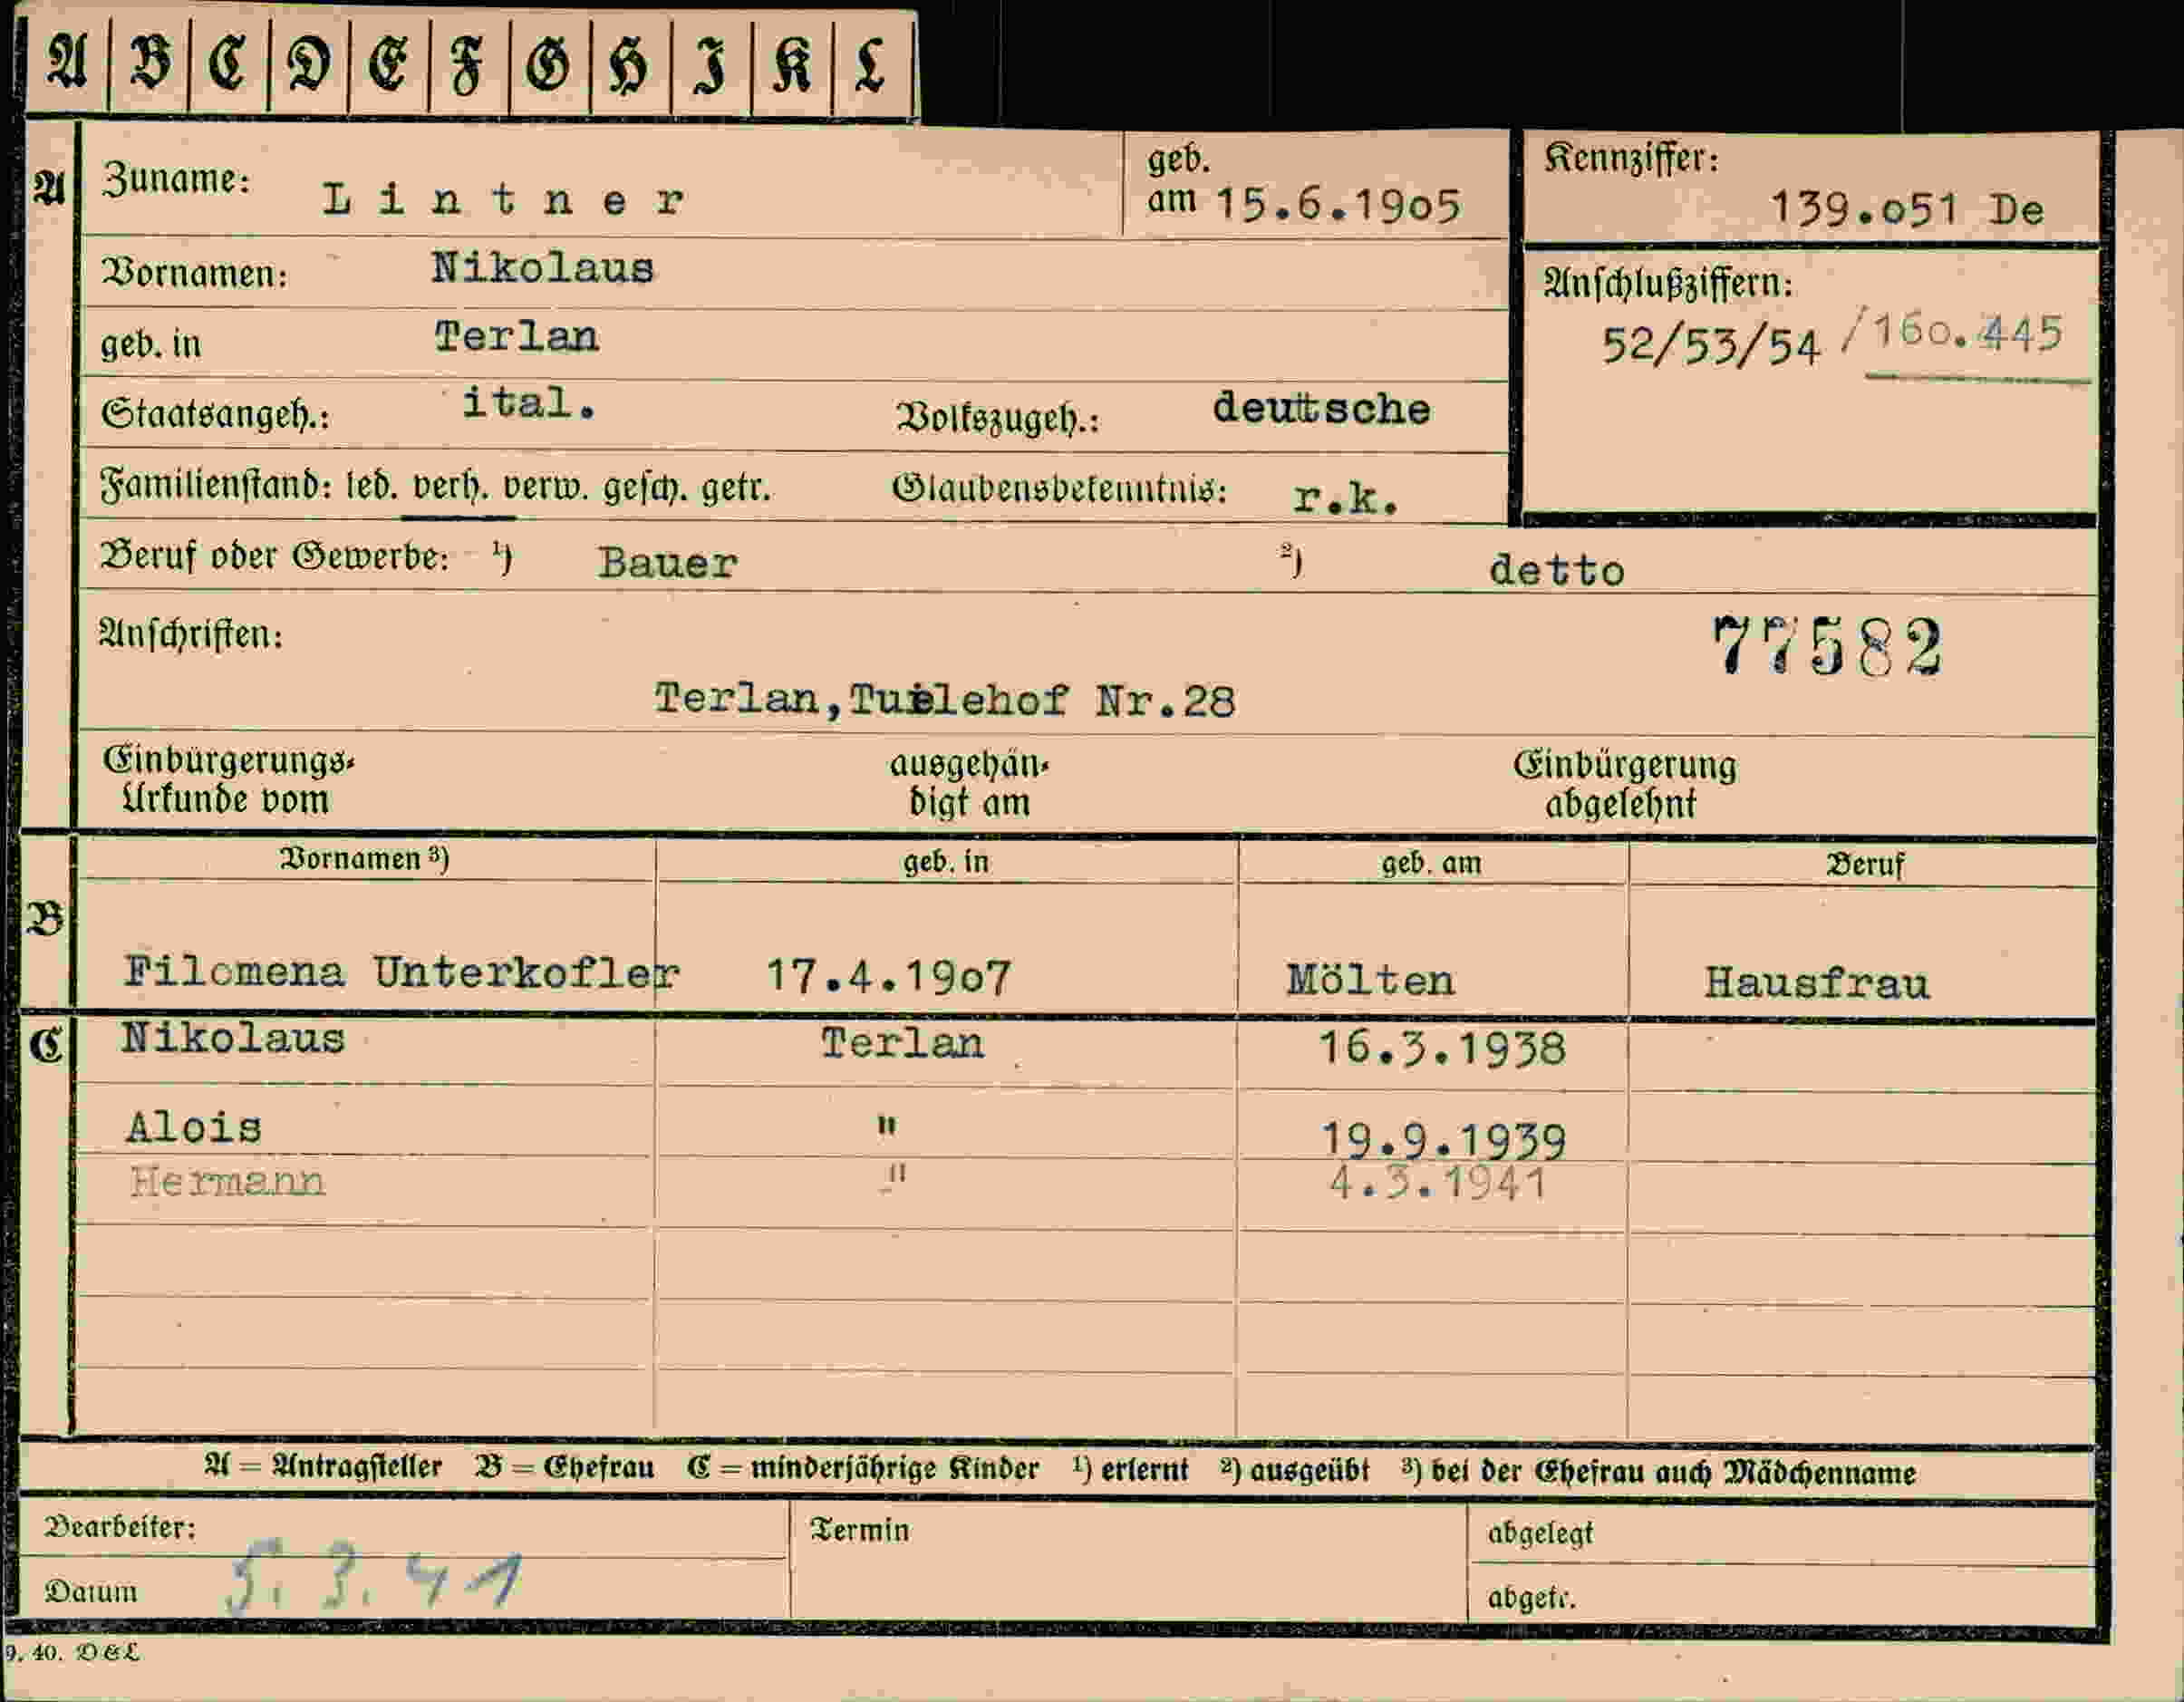 A B C D E F G H I K L
A Zuname: Lintner geb. am 15.6.19o5 Kennziffer: 139.o51 De
Vornamen: Nikolaus
Anschlußziffern:
52/53/54 /16o.445
geb. in Terlan
Staatsangeh.: ital. Volkszugeh.: deutsche
Familienstand: led. verh. verw. gesch. getr. Glaubensbekenntnis: r.k.
Beruf oder Gewerbe: ¹) Bauer ²) detto
Anschriften: 77582
Terlan, Nr.28
Einbürgerungs- ausgehän- Einbürgerung
Urkunde vom digt am abgelehnt
Vornamen ³) geb. in geb. am Beruf
B
Filomena Unterkofler 17.4.19o7 Mölten Hausfrau
C Nikolaus Terlan 16.3.1938
Alois " 19.9.1939
Hermann -" 4.3.1941
A = Antragsteller B = Ehefrau C = minderjährige Kinder ¹) erlernt ²) ausgeübt ³) bei der Ehefrau auch Mädchenname
Bearbeiter: Termin abgelegt
Datum 5.3.41 abgetr.
9. 40. D&L